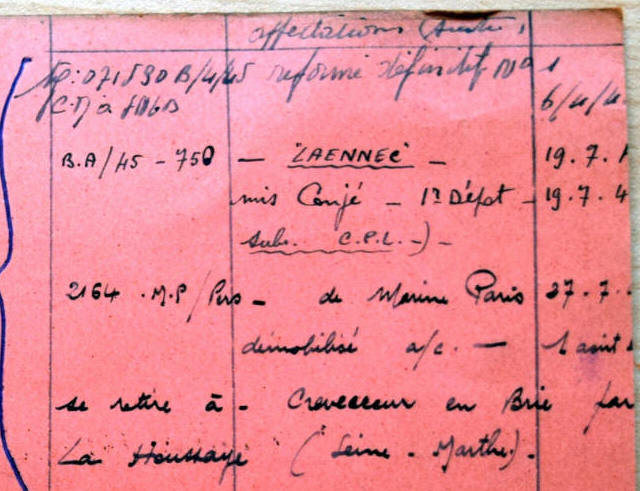 affectations (suite)
071530 B/4/45 reformé définitif N° 1
C.M à 6/4/4
B.A/45 - 750 — "LAENNEC" — 19.7.
mis Congé — 1er Dépot — 19.7.4
Sub. C.P.L. -) -
2164 .M.P/Pers — de Marine Paris 27.7.
démobilisé a/c. — 1 août
se retire à - Crevecoeur en Brie par
La Houssaye (Seine - Marthe). -